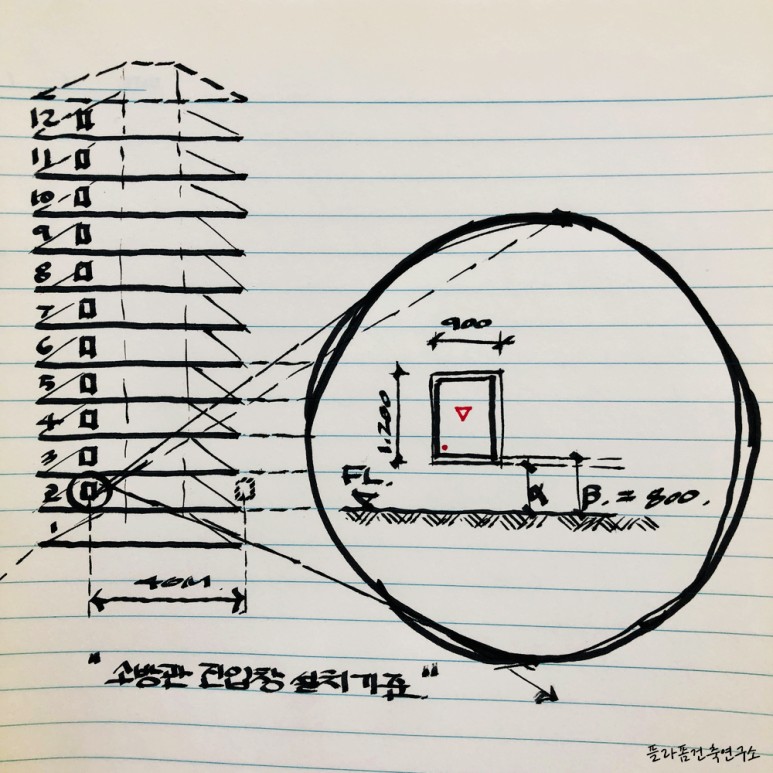 12
11
10
9
8
7
6
5
4
3
2
1
40M
900
1.200
α
β. = 800.
"소방관 진입창 설치기준"
플라폼건축연구소